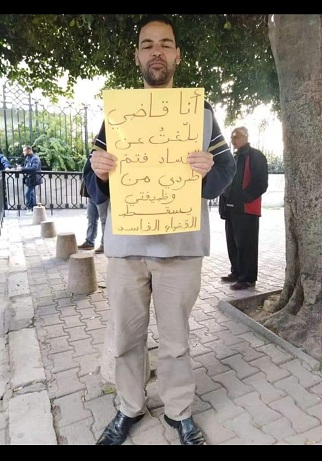 أنا قاضي
بلّغتُ عن
فساد فتم
طردي من
وظيفتي
يسقط
القضاء الفاسد